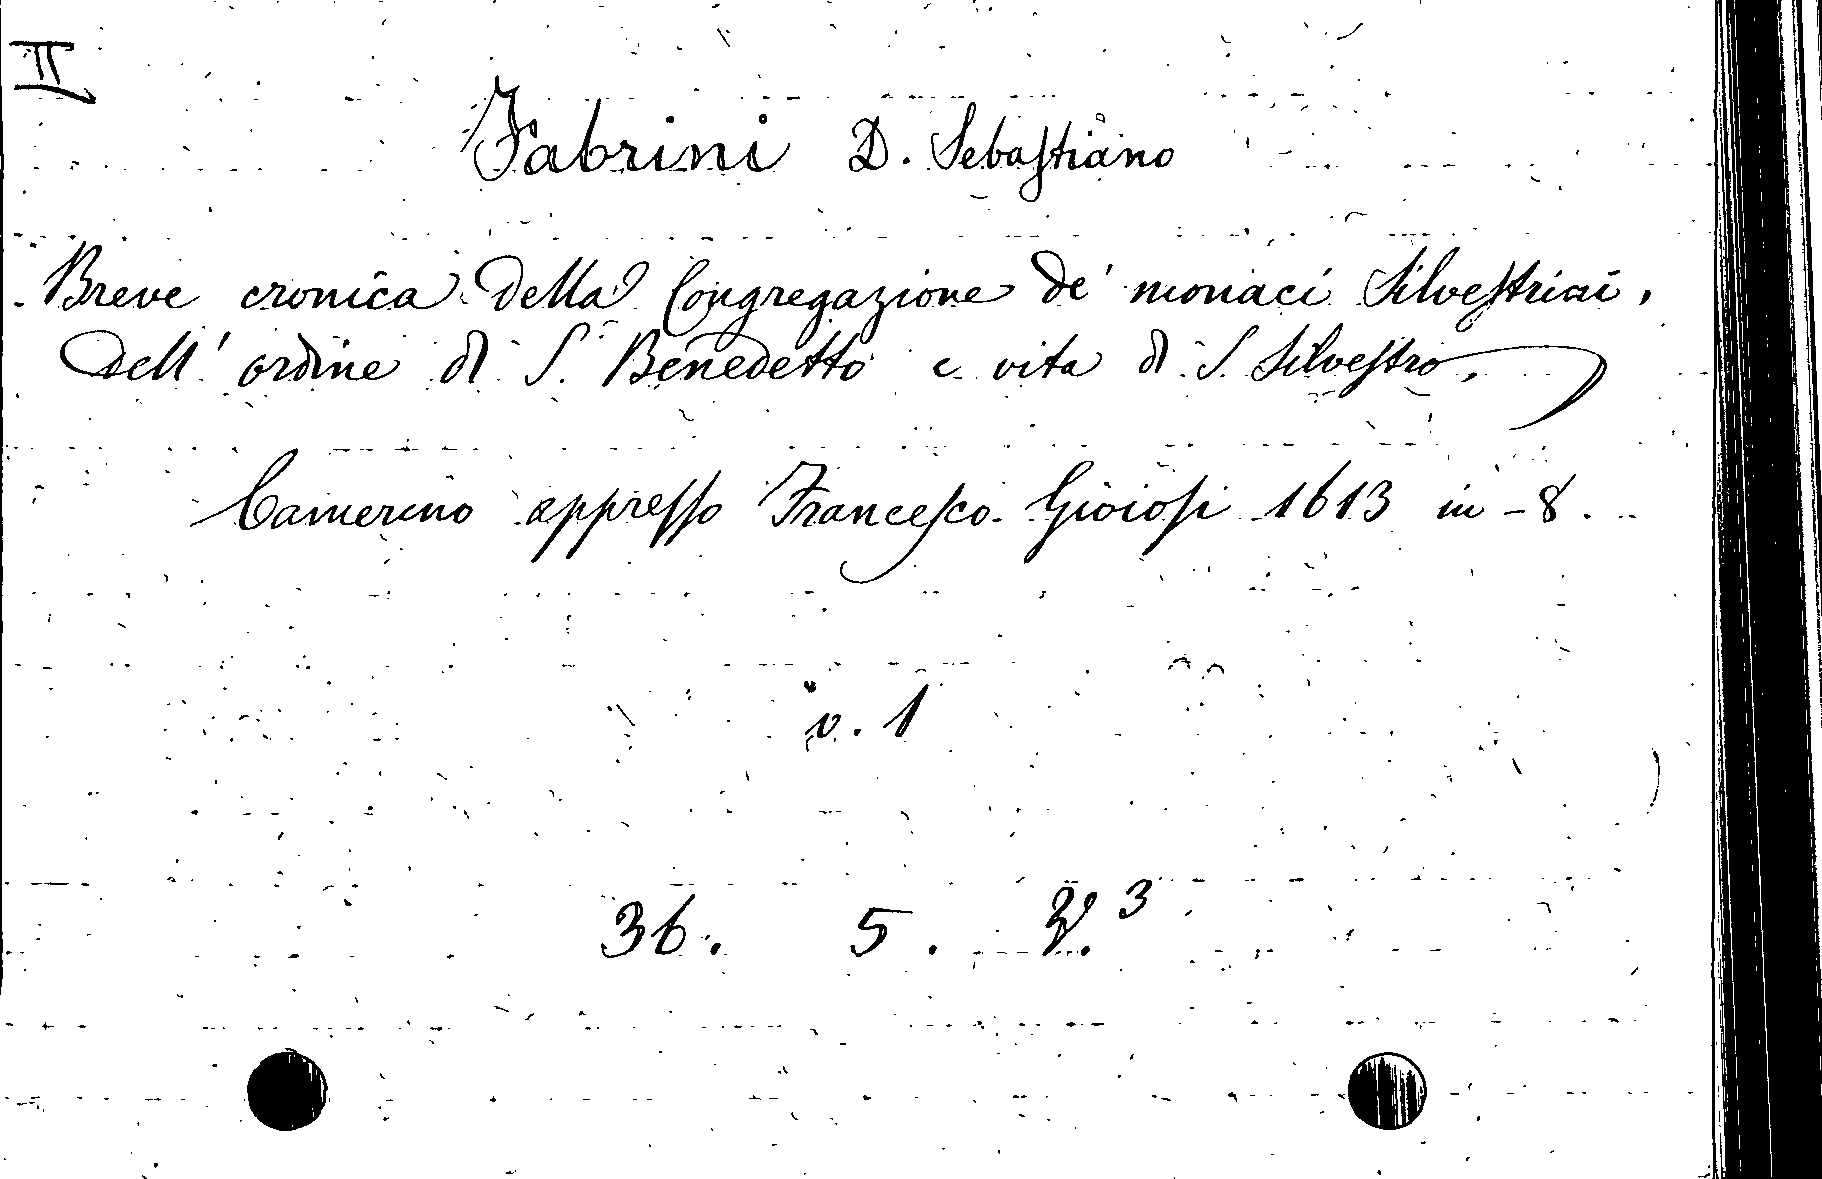 II
Fabrini D. Sebastiano
Breve cronica della Congregazione de' monaci Silvestrini,
dell' ordine di S. Benedetto e vita di S. Silvestro.
Camerino appresso Francesco Gioiosi 1613 in-8.
v. 1
36. 5.